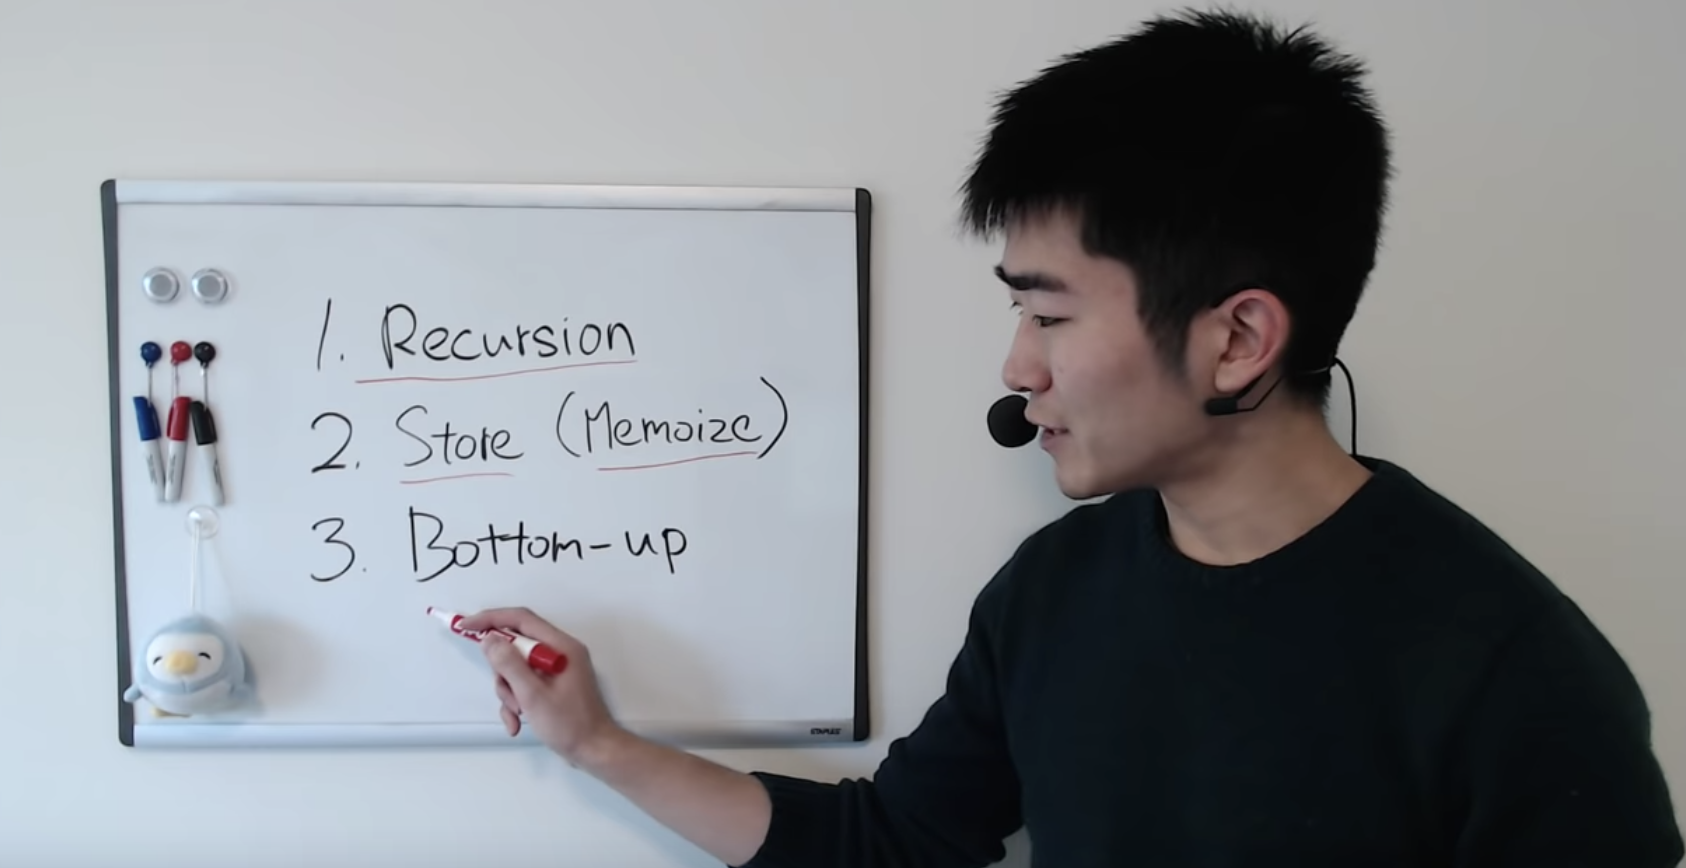 1. Recursion
2. Store (Memoize)
3. Bottom-up
STAPLES